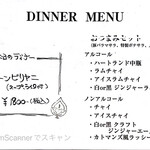 DINNER MENU
本日のディナー
ーンビリヤニ
(スープ、ライタ付)
¥1800-(税込)
おつまみセット
(豚バラマサラ、特製ポテマサラ、
アルコール
・ハートランド中瓶
・ラムチャイ
・アイスチャイ
・白or黒 ジンジャーラ
ノンアルコール
・チャイ
・アイスチャイ
・白or黒 クラフト
ジンジャーエー
・カトマンズ風ラッシー
mScannerでスキャン